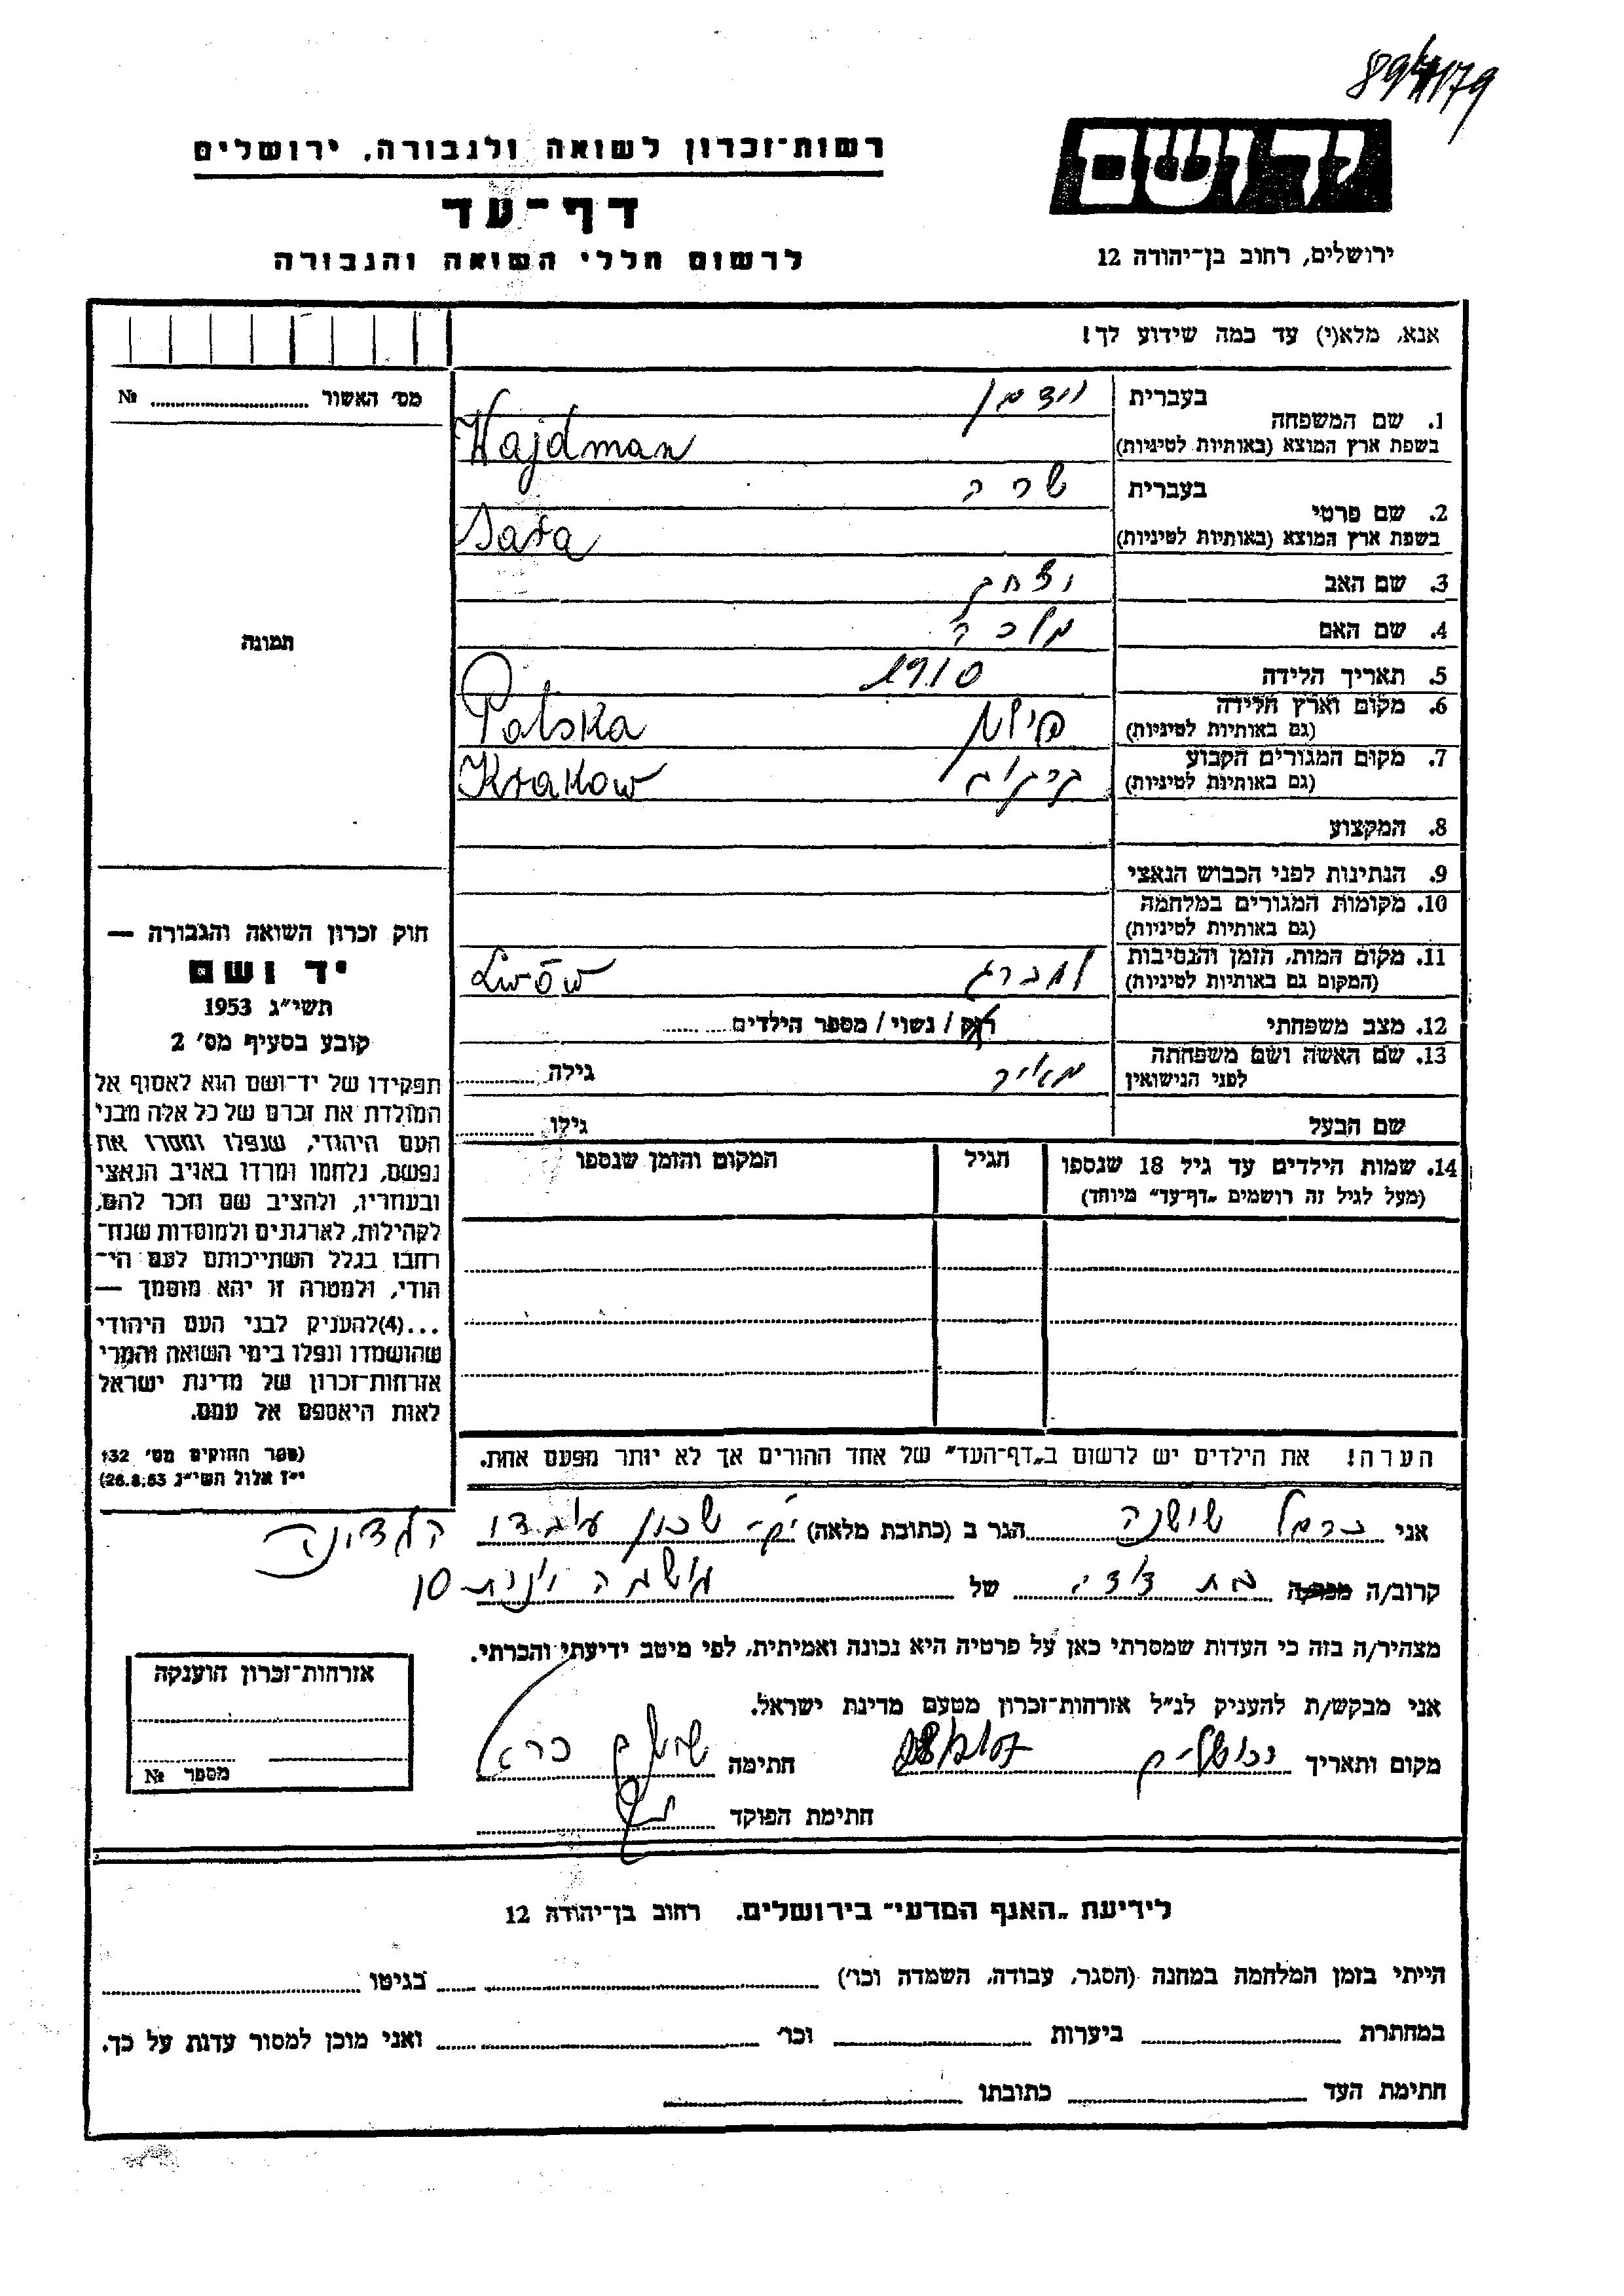 89/4179
רשות־זכרון לשואה ולגבורה, ירושלים
יד ושם
דף־עד
לרשום חללי השואה והגבורה
ירושלים, רחוב בן־יהודה 12
אנא, מלא(י) עד כמה שידוע לך!
מס׳ האשור № 
1. שם המשפחה
בעברית
בשפת ארץ המוצא (באותיות לטיניות)
Wajdman
2. שם פרטי
בעברית שרה
בשפת ארץ המוצא (באותיות לטיניות)
Sara
3. שם האב יצחק
4. שם האם מלכה
תמונה
5. תאריך הלידה 1910
6. מקום וארץ הלידה
(גם באותיות לטיניות) פולין Polska
7. מקום המגורים הקבוע
(גם באותיות לטיניות) קרקוב Krakow
8. המקצוע
9. הנתינות לפני הכבוש הנאצי
10. מקומות המגורים במלחמה
(גם באותיות לטיניות)
11. מקום המות, הזמן והנסיבות
(המקום גם באותיות לטיניות) למברג Lwów
12. מצב משפחתי רוק / נשוי / מספר הילדים
13. שם האשה ושם משפחתה
לפני הנישואין מאיר גילה
שם הבעל גילו
14. שמות הילדים עד גיל 18 שנספו הגיל המקום והזמן שנספו
(מעל לגיל זה רושמים „דף־עד״ מיוחד)
חוק זכרון השואה והגבורה —
יד ושם
תשי״ג 1953
קובע בסעיף מס׳ 2
תפקידו של יד־ושם הוא לאסוף אל
המולדת את זכרם של כל אלה מבני
העם היהודי, שנפלו ומסרו את
נפשם, נלחמו ומרדו באויב הנאצי
ובעוזריו, ולהציב שם וזכר להם,
לקהילות, לארגונים ולמוסדות שנח־
רבו בגלל השתייכותם לעם הי־
הודי, ולמטרה זו יהא מוסמך —
...(4)להעניק לבני העם היהודי
שהושמדו ונפלו בימי השואה והמרי
אזרחות־זכרון של מדינת ישראל
לאות היאספם אל עמם.
(ספר החוקים מס׳ 132
י״ז אלול תשי״ג 26.8.53)
הערה! את הילדים יש לרשום ב„דף־העד״ של אחד ההורים אך לא יותר מפעם אחת.
אני כרמל שושנה הגר ב (כתובת מלאה) שכון
קרוב/ה מכר/ה בת דודה של
מצהיר/ה בזה כי העדות שמסרתי כאן על פרטיה היא נכונה ואמיתית, לפי מיטב ידיעתי והכרתי.
אני מבקש/ת להעניק לנ״ל אזרחות־זכרון מטעם מדינת ישראל.
מקום ותאריך ירושלים חתימה
חתימת הפוקד
אזרחות־זכרון הוענקה
מספר №
לידיעת „האגף המדעי״ בירושלים. רחוב בן־יהודה 12
הייתי בזמן המלחמה במחנה (הסגר, עבודה, השמדה וכו׳) בגיטו
במחתרת ביערות וכו׳ ואני מוכן למסור עדות על כך.
חתימת העד כתובתו